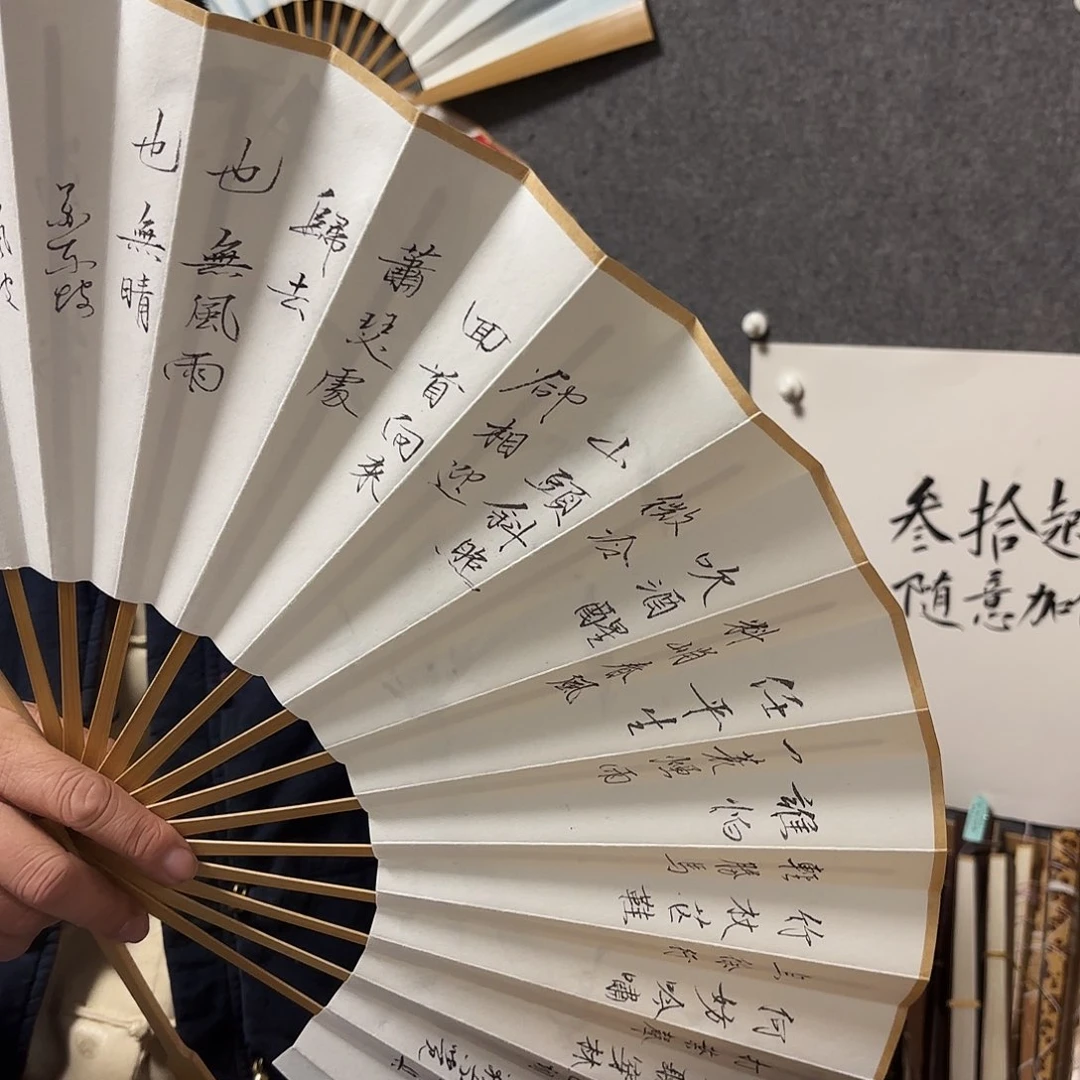 何妨吟嘯
且徐行
竹杖芒鞋
輕勝馬
誰怕
一蓑煙雨
任平生
料峭春風
吹酒醒
微冷
山頭斜照
卻相迎
回首向來
蕭瑟處
歸去
也無風雨
也無晴
苏东坡
叁拾起
随意加